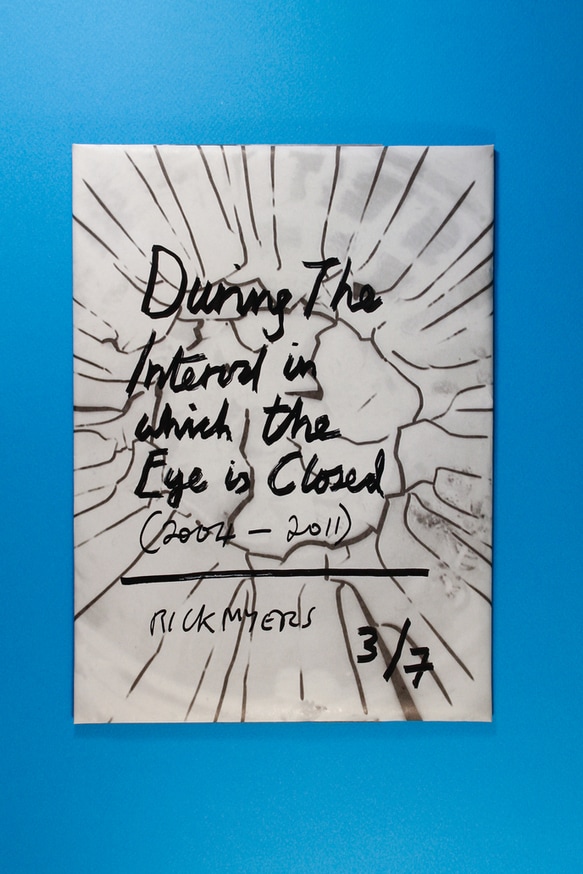 During The
Interval in
which the
Eye is Closed
(2004 – 2011)
RICK MYERS
3/7